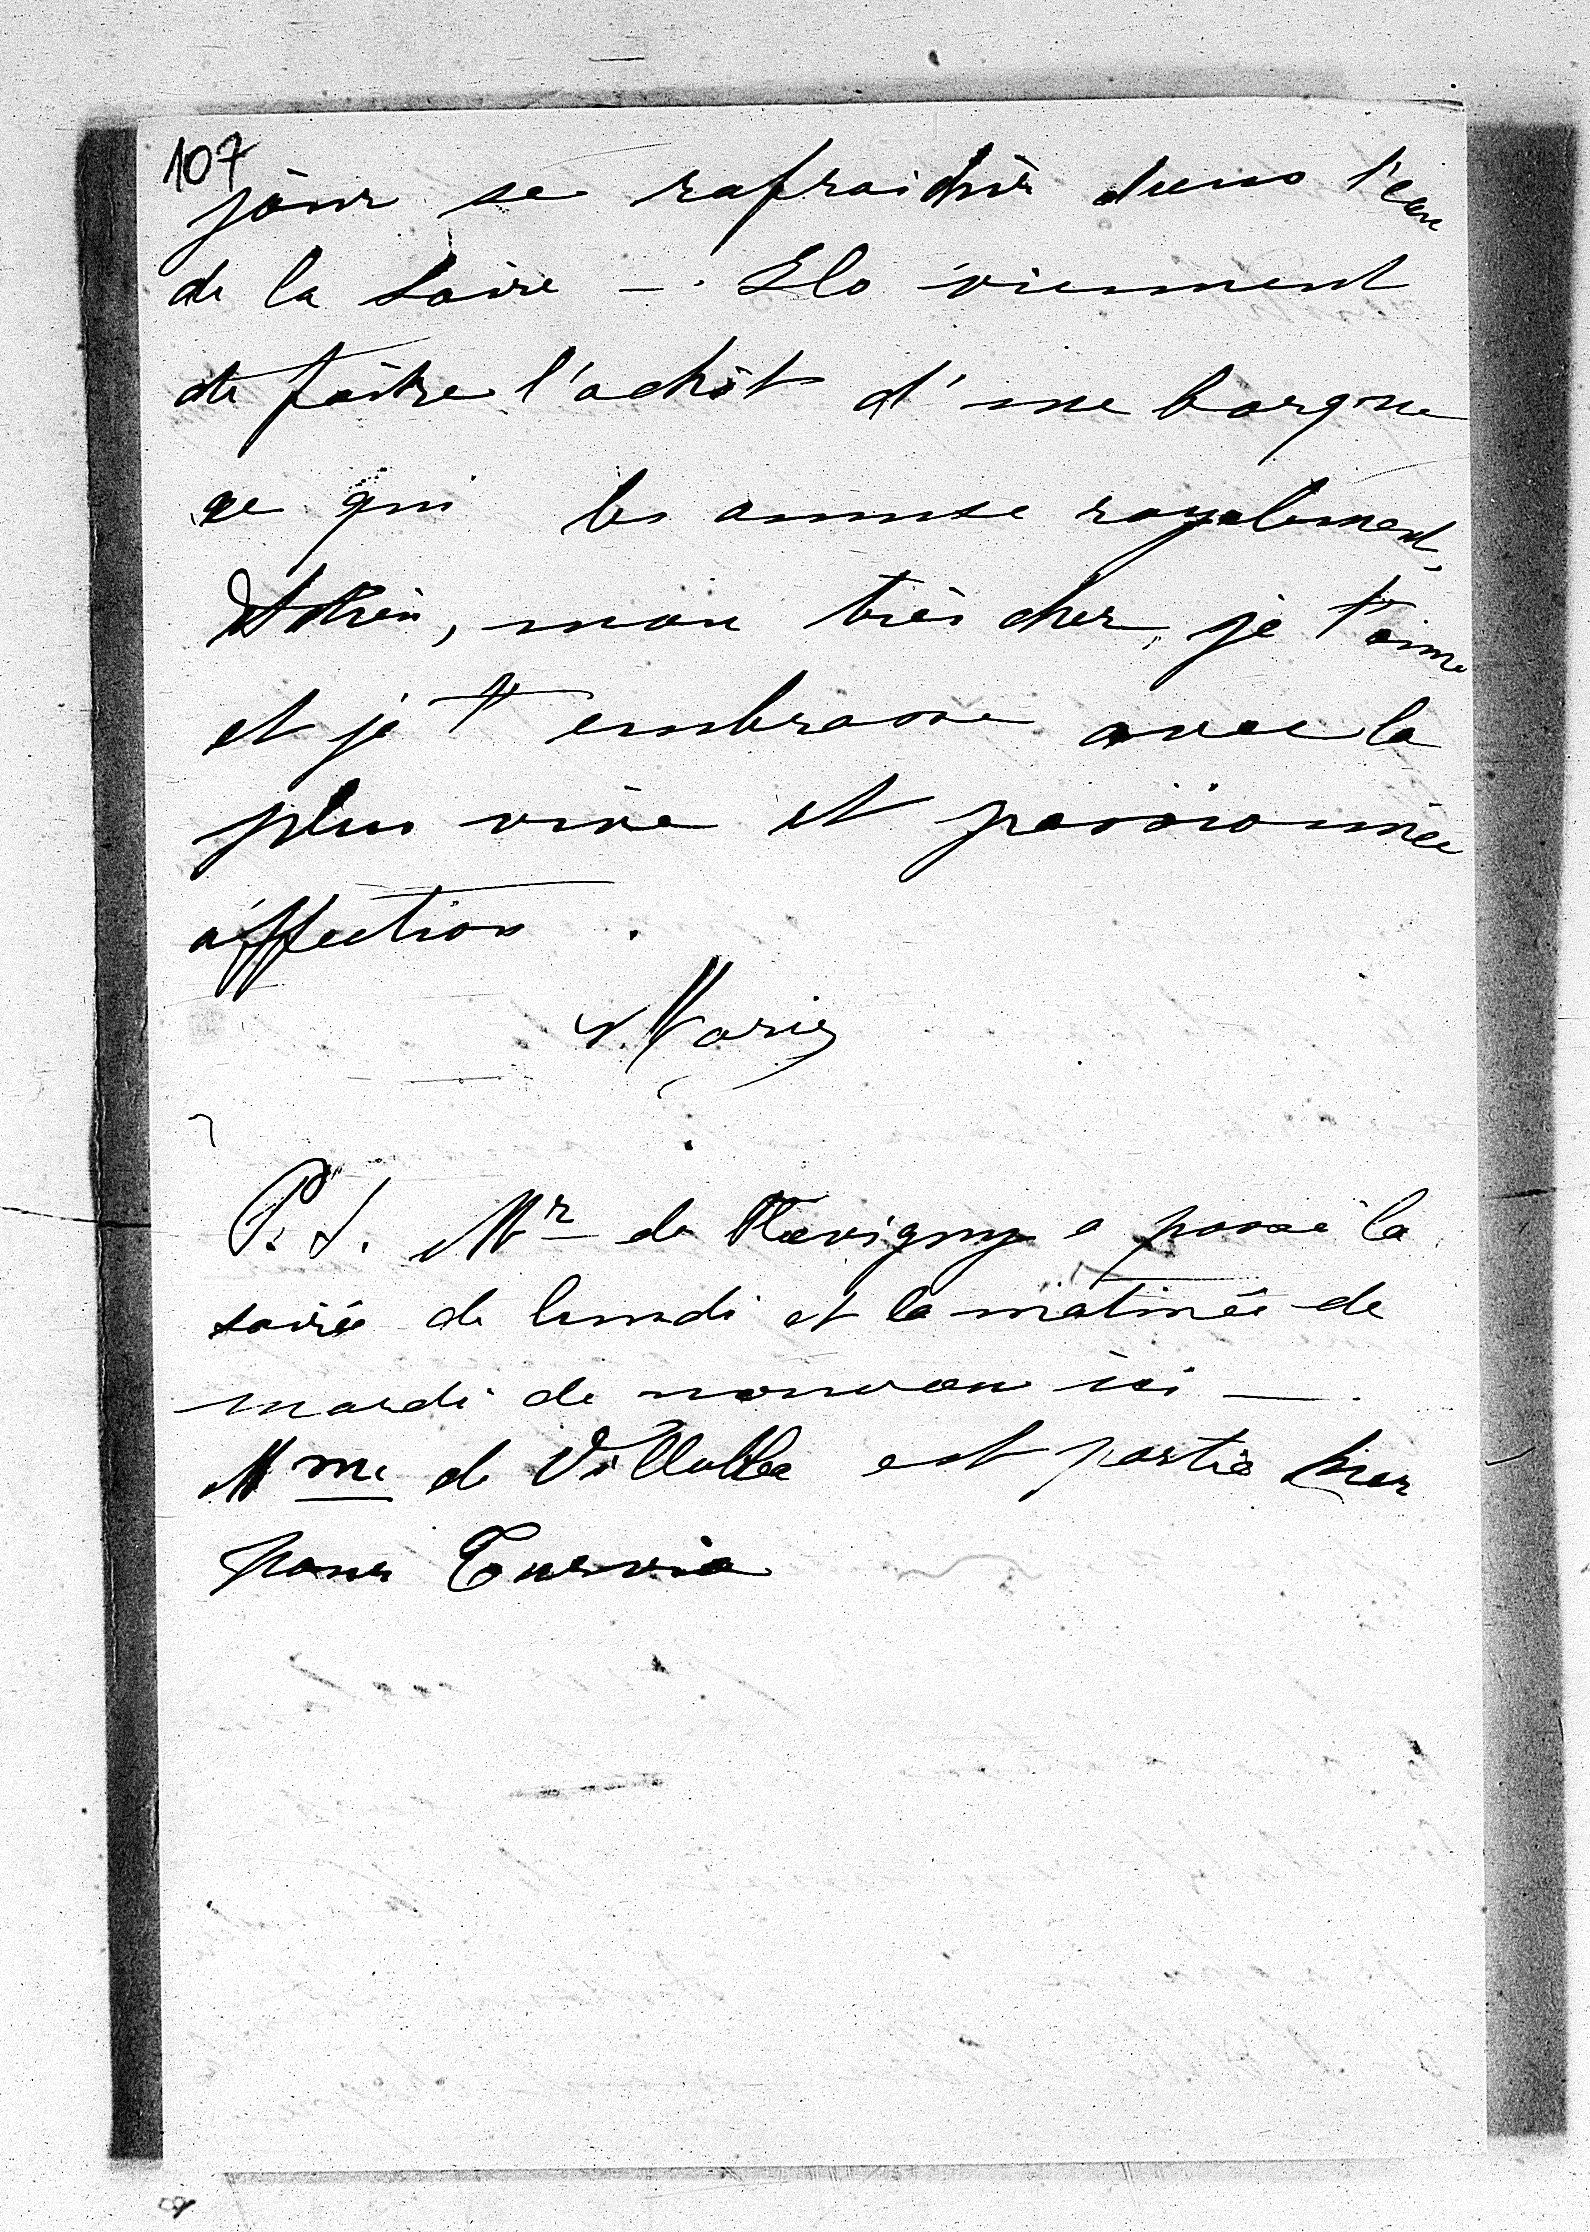 107
jour se rafraichir dans l'eau
de la Loire —. Ils viennent
de faire l'achat d'une barque
ce qui les amuse royalement,
mon très cher, je t'aime
et je t'embrasse avec la
plus vive et passionnée
affection.
Marie
P.S. Mr de Flavigny a passé la
soirée de lundi et la matinée de
mardi de nouveau ici —.
Mme de est partie hier
pour